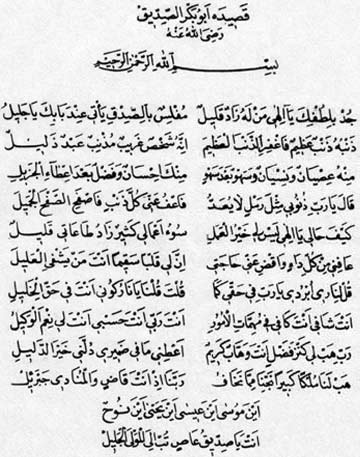 قصيده ابو بكر الصديق
رضى الله عنه
بسم الله الرحمن الرحيم
جد بلطفك يا الهى من له زاد قليل مفلس بالصدق يأتى عند بابك يا جليل
ذنبه ذنب عظيم فاغفر الذنب العظيم انه شخص غريب مذنب عبد ذليل
منه عصيان ونسيان وسهو بعد سهو منك احسان وفضل بعد اعطاء الجزيل
قال يا رب ذنوبى مثل رمل لا يعد فاعف عنى كل ذنب فاصفح الصفح الجميل
كيف حالى يا الهى ليس لى خير العمل سوء اعمالى كثير زاد طاعاتى قليل
عافنى من كل داء واقض عنى حاجتى ان لى قلبا سقيما انت من يشفى العليل
قل لنار ابردى يا رب فى حقى كما قلت قلنا يا نار كونى انت فى حق الخليل
انت شافى انت كافى فى مهمات الامور انت ربى انت حسبى انت لى نعم الوكيل
رب هب لى كنز فضل انت وهاب كريم اعطنى ما فى ضميرى دلنى خير الدليل
هب لنا ملكا كبيرا نجنا مما نخاف ربنا اذ انت قاضى والمنادى جبرئيل
اين موسى اين عيسى اين يحيى اين نوح
انت يا صديق عاص تب الى المولى الجليل